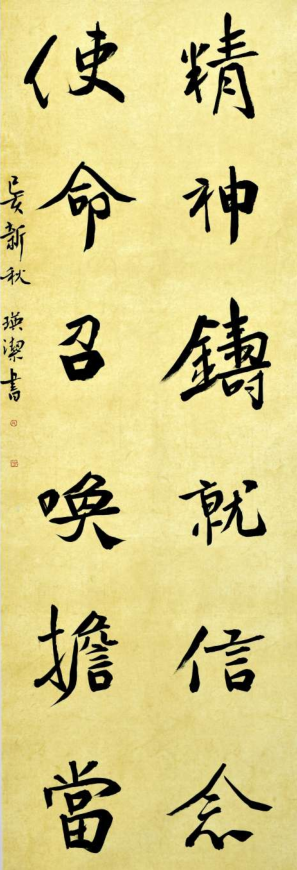 精神鑄就信念
使命召喚擔當
己亥新秋 瑛潔書